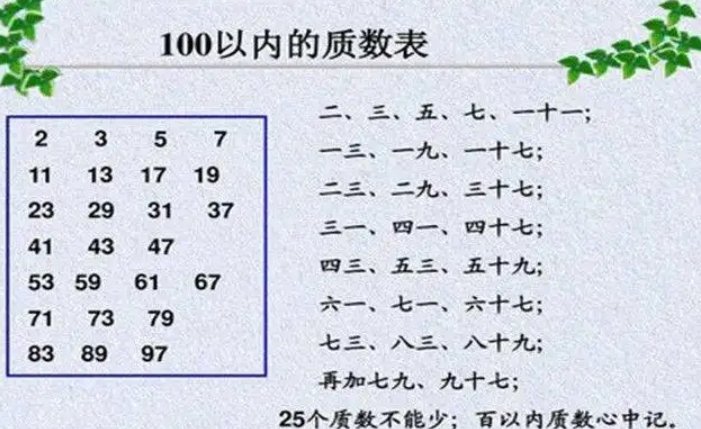 100以内的质数表
2 3 5 7
11 13 17 19
23 29 31 37
41 43 47
53 59 61 67
71 73 79
83 89 97
二、三、五、七、一十一；
一三、一九、一十七；
二三、二九、三十七；
三一、四一、四十七；
四三、五三、五十九；
六一、七一、六十七；
七三、八三、八十九；
再加七九、九十七；
25个质数不能少；百以内质数心中记。